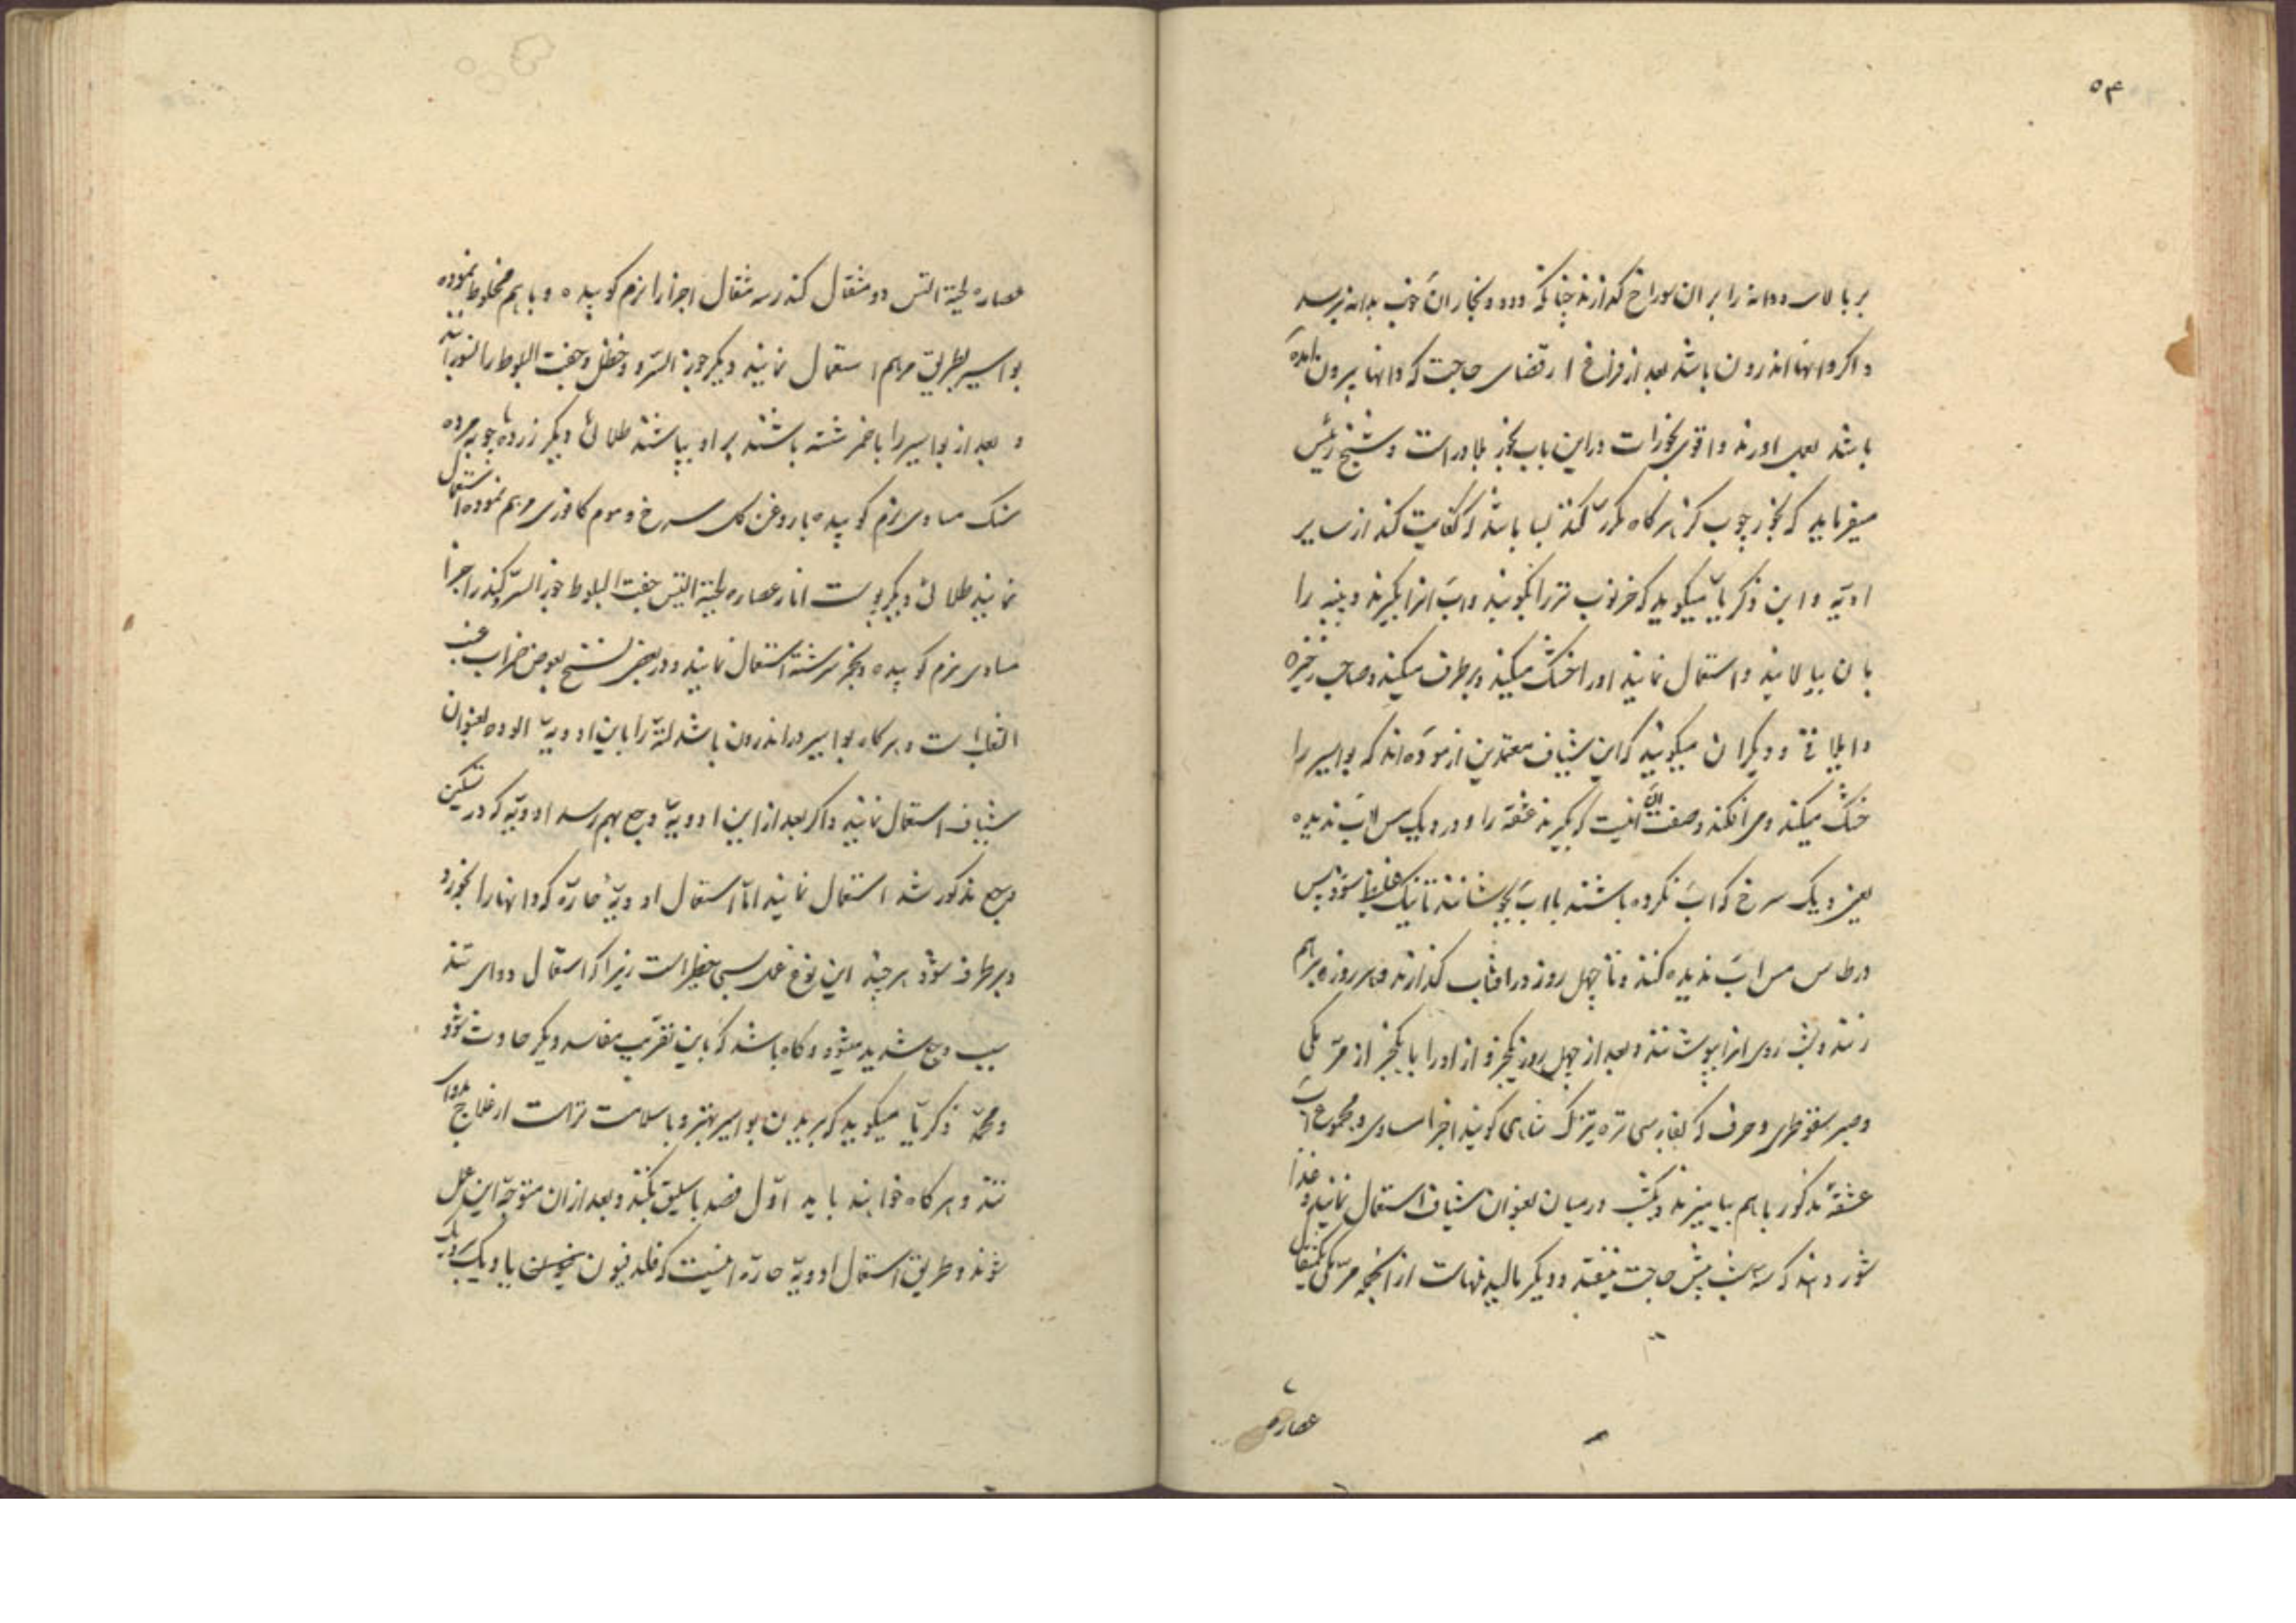 ۵۴
بر بالای و دانه را بر ان سوراخ گذارند چنانکه دود و بخار ان خوب بدانه برسد
و اکر دانها اندرون باشد بعد از فراغ از قضای حاجت که دانها بیرون امده
باشد بعمل اورند و اقوی بخورات دراین باب بخور بلادر است و شیخ رئیس
میفرماید که بخور چوب کز هرکاه مکرر کنند بسا باشد که کفایت کند از سایر
ادویه و ابن ذکریا میکوید که خرنوب تر را بکوبند و اب انرا بکیرند و پنبه را
بان بیالایند و استعمال نمایند اورا خشک میکند و برطرف میکند و صاحب ذخیره
و ایلاقی و دیکران میکویند که این شیاف معتمدین ازموده اند که بواسیر را
خشک میکند و می افکند و صفت ان اینست که بکیرند عشقه را و در دیک مس اب ندیده
یعنی دیک سرخ که اب نکرده باشند با اب بجوشانند تا نیک غلیظ شود پس
در طاس مس اب ندیده کنند و تا چهل روز در افتاب کذارند و هر روزه برهم
زنند و شب روی انرا بپوشانند و بعد از چهل روز یکجزو از اورا با یکجزو از مر مکی
و صبر سقوطری و حرف که بفارسی تره تیزک شاهی کویند اجزا مساوی و مجموع اب
عشقه مذکور باهم بیامیزند و یکشب درمیان بعنوان شیاف استعمال نمایند و غذا
شور دهند که سه شب پیش حاجت نیفتد و دیکر مالیدنهاست از انجمله مر مکی یکمثقال
عصاره
عصاره لحیة التیس دو مثقال کندر سه مثقال اجزا را نرم کوبیده و باهم مخلوط نموده
بواسیر بطریق مرهم استعمال نمایند دیکر جوز السرو و حنظل و جفت البلوط را بسوزانند
و بعد از بواسیر را با خمر شسته باشند بر او بپاشند طلائی دیکر زرده چوبه مرده
سنک مساوی نرم کوبیده با روغن کل سرخ و موم کافوری مرهم نموده استعمال
نمایند طلائی دیکر پوست انار عصاره لحیة التیس جفت البلوط جوز السرو کندر اجزا
مساوی نرم کوبیده و بخمر سرشته استعمال نمایند و در بعضی نسخ بعوض خمر اب عنب
الثعلب است و هرکاه بواسیر در اندرون باشد لته را باین ادویه الوده بعنوان
شیاف استعمال نمایند و اکر بعد از این ادویه وجع بهم رسد ادویه که در تسکین
وجع مذکور شد استعمال نمایند اما استعمال ادویه حاره که دانها را بخورد
و برطرف شود هرچند این نوع عمل بسی خطر است زیرا که استعمال دوای تند
سبب وجع شدید میشود و کاه باشد که باین تقریب مفاسد دیکر حادث شود
و محمد ذکریا میکوید که بریدن بواسیر بهتر و باسلامت تر است از علاج بدوای
تند و هرکاه خواهند باید اول فصد باسلیق بکنند و بعد از ان متوجه این عمل
شوند و طریق استعمال ادویه حاره اینست که فلدفیون یا دیک بردیک